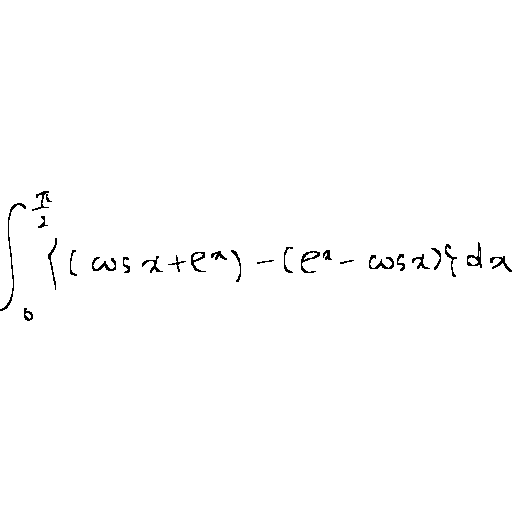 \int_{0}^{\frac{\pi}{2}} \{ ( \cos x + e^{x} ) - ( e^{x} - \cos x ) \} dx